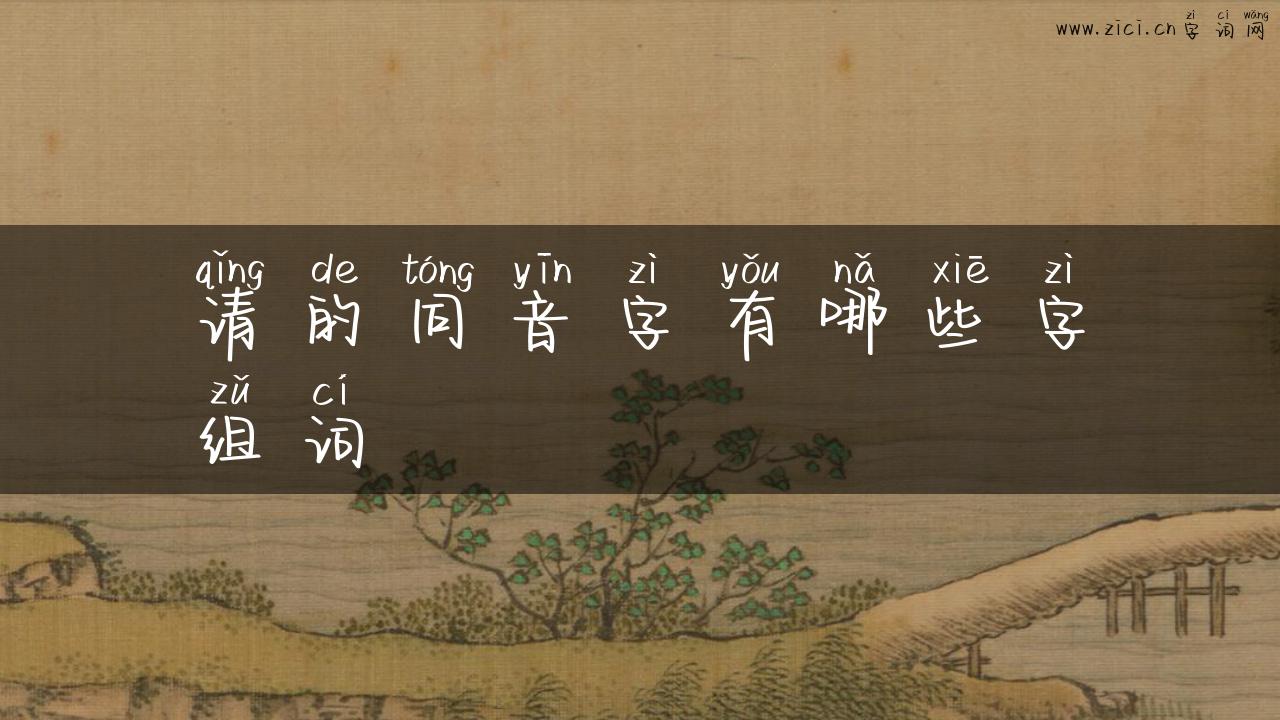 zì cí wǎng
www.zici.cn 字 词 网
qǐng de tóng yīn zì yǒu nǎ xiē zì
请 的 同 音 字 有 哪 些 字
zǔ cí
组 词